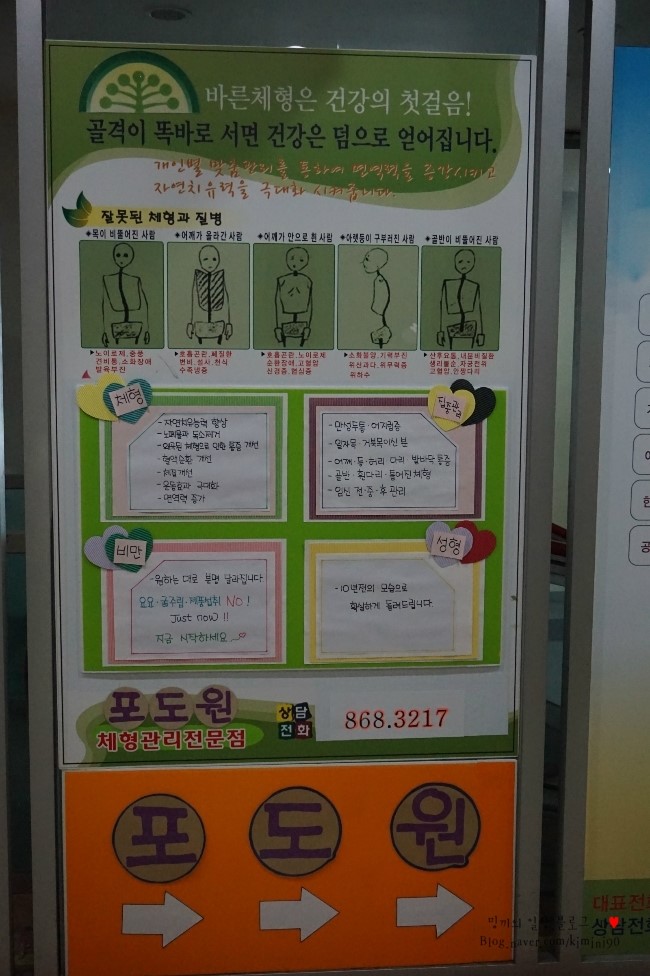 바른체형은 건강의 첫걸음!
골격이 똑바로 서면 건강은 덤으로 얻어집니다.
개인별 맞춤관리를 통하여 면역력을 증강시키고
자연치유력을 극대화 시켜줍니다.
잘못된 체형과 질병
◈목이 비뚤어진 사람 ◈어깨가 올라간 사람 ◈어깨가 안으로 휜 사람 ◈아랫등이 구부러진 사람 ◈골반이 비뚤어진 사람
▶노이로제, 중풍
견비통, 소화장애
발육부진
▶호흡곤란, 폐질환
변비, 설사, 천식
수족냉증
▶호흡곤란, 노이로제
순환장애, 고혈압
신경증, 협심증
▶소화불량, 기력부진
위산과다, 위무력증
위하수
▶산후요통, 내분비질환
생리불순, 자궁전위
고혈압, 안짱다리
체형
- 자연치유능력 향상
- 노폐물과 독소제거
- 왜곡된 체형으로 인한 통증 개선
- 혈액순환 개선
- 체질개선
- 운동효과 극대화
- 면역력 증가
집중관리
- 만성두통·어지럼증
- 일자목·거북목이신 분
- 어깨·등·허리·다리·발바닥 통증
- 골반·휜다리·틀어진 체형
- 임신 전·중·후 관리
비만
- 원하는 대로 분명 달라집니다
요요·굶주림·제품섭취 NO!
Just now!!
지금 시작하세요
성형
- 10년전의 모습으로
확실하게 돌려드립니다.
포도원
체형관리전문점
상담
전화
868.3217
포 도 원
대표전
상담전화
Blog_naver.com/kjmjni90